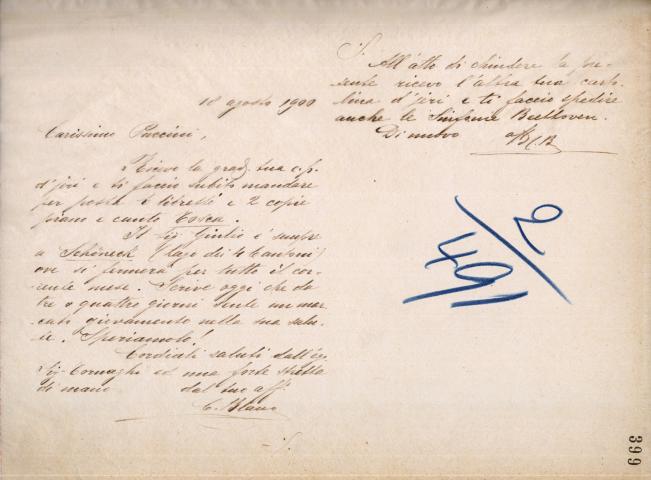 18 agosto 1900
Carissimo Puccini,
Ricevo la grad. tua c.p.
d'jeri e ti faccio subito mandare
per posta 6 libretti e 2 copie
piano e canto Tosca.
Il Sig. Giulio è sempre
a Schöneck (lago dei 4 Cantoni)
ove si fermerà per tutto il cor-
rente mese. Scrive oggi che da
tre o quattro giorni sente un mar-
cato giovamento nella sua salu-
te. Speriamolo!
Cordiali saluti dall'eg.
Sig. Tornaghi ed una forte stretta
di mano dal tuo aff.
C. Blanc
S.
All'atto di chiudere la pre-
sente ricevo l'altra tua carto-
lina d'jeri e ti faccio spedire
anche le Sinfonie Beethoven.
Di nuovo
2/491
399